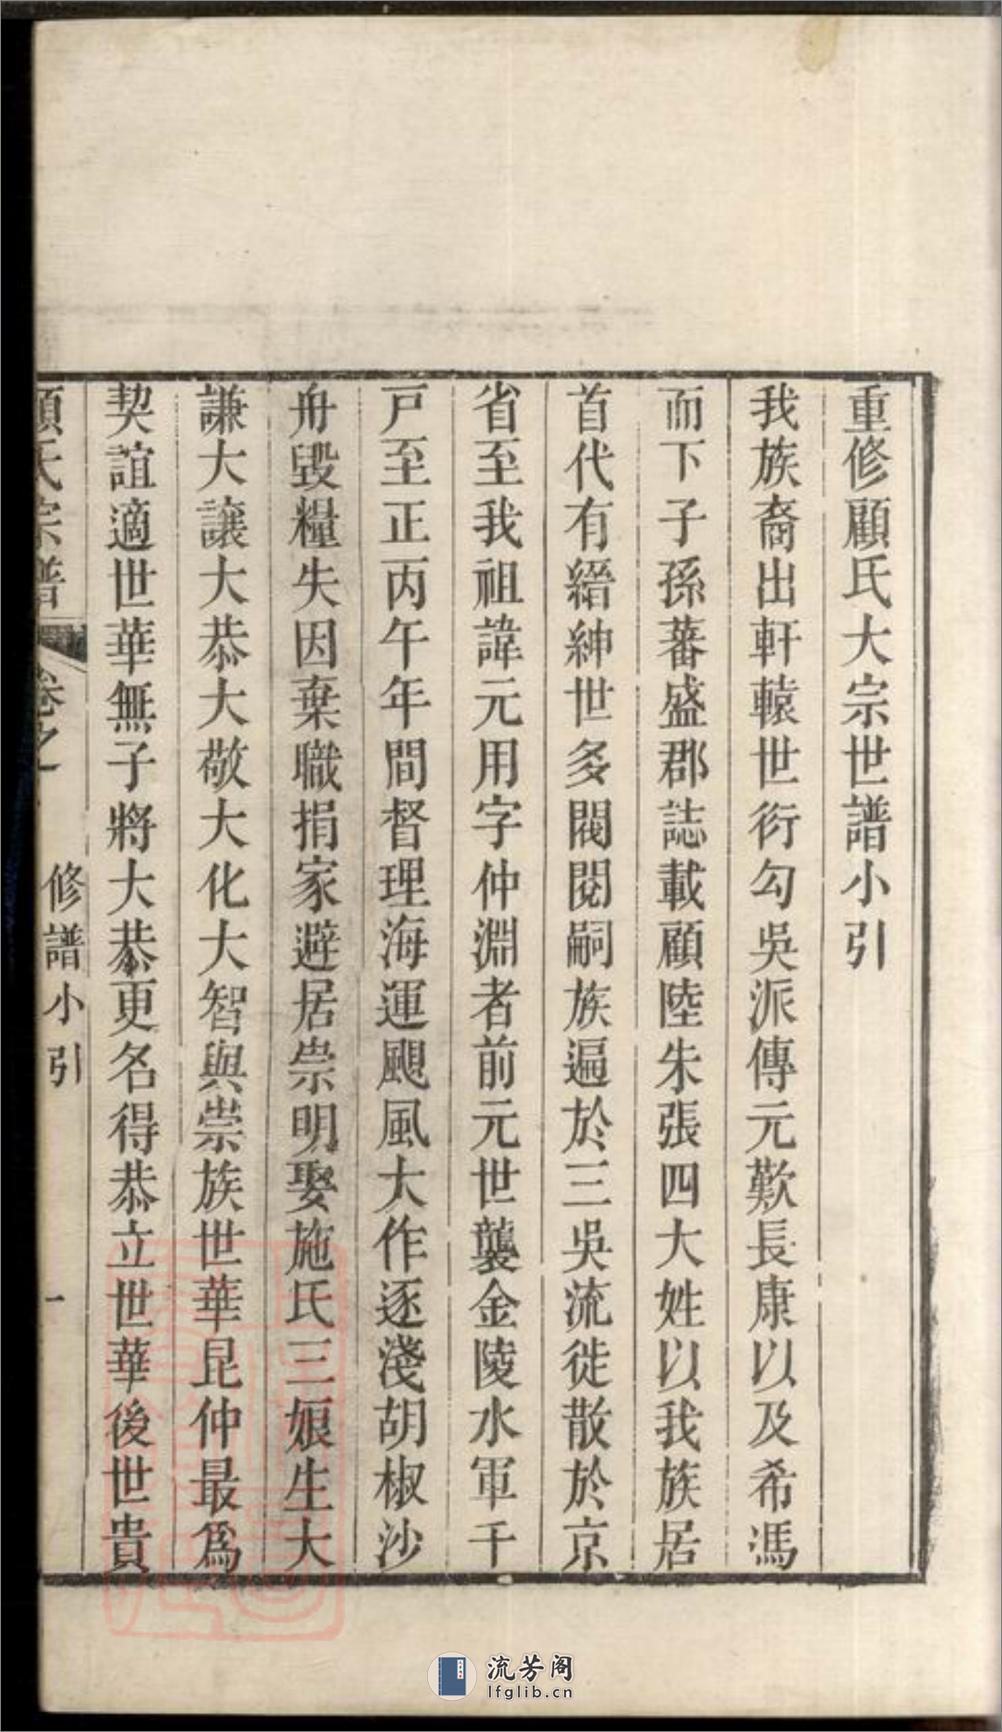 重修顧氏大宗世譜小引
我族裔出軒轅世衍勾吳派傳元歎長康以及希馮
而下子孫蕃盛郡誌載顧陸朱張四大姓以我族居
首代有縉紳世多閥閱嗣族遍於三吳流徙散於京
省至我祖諱元用字仲淵者前元世襲金陵水軍千
戸至正丙午年間督理海運颶風大作逐淺胡椒沙
舟毀糧失因棄職捐家避居崇明娶施氏三娘生大
謙大讓大恭大敬大化大智與崇族世華昆仲最爲
契誼適世華無子將大恭更名得恭立世華後世貴
顧氏宗譜 卷之一 修譜小引 一
流芳阁
lfglib.cn